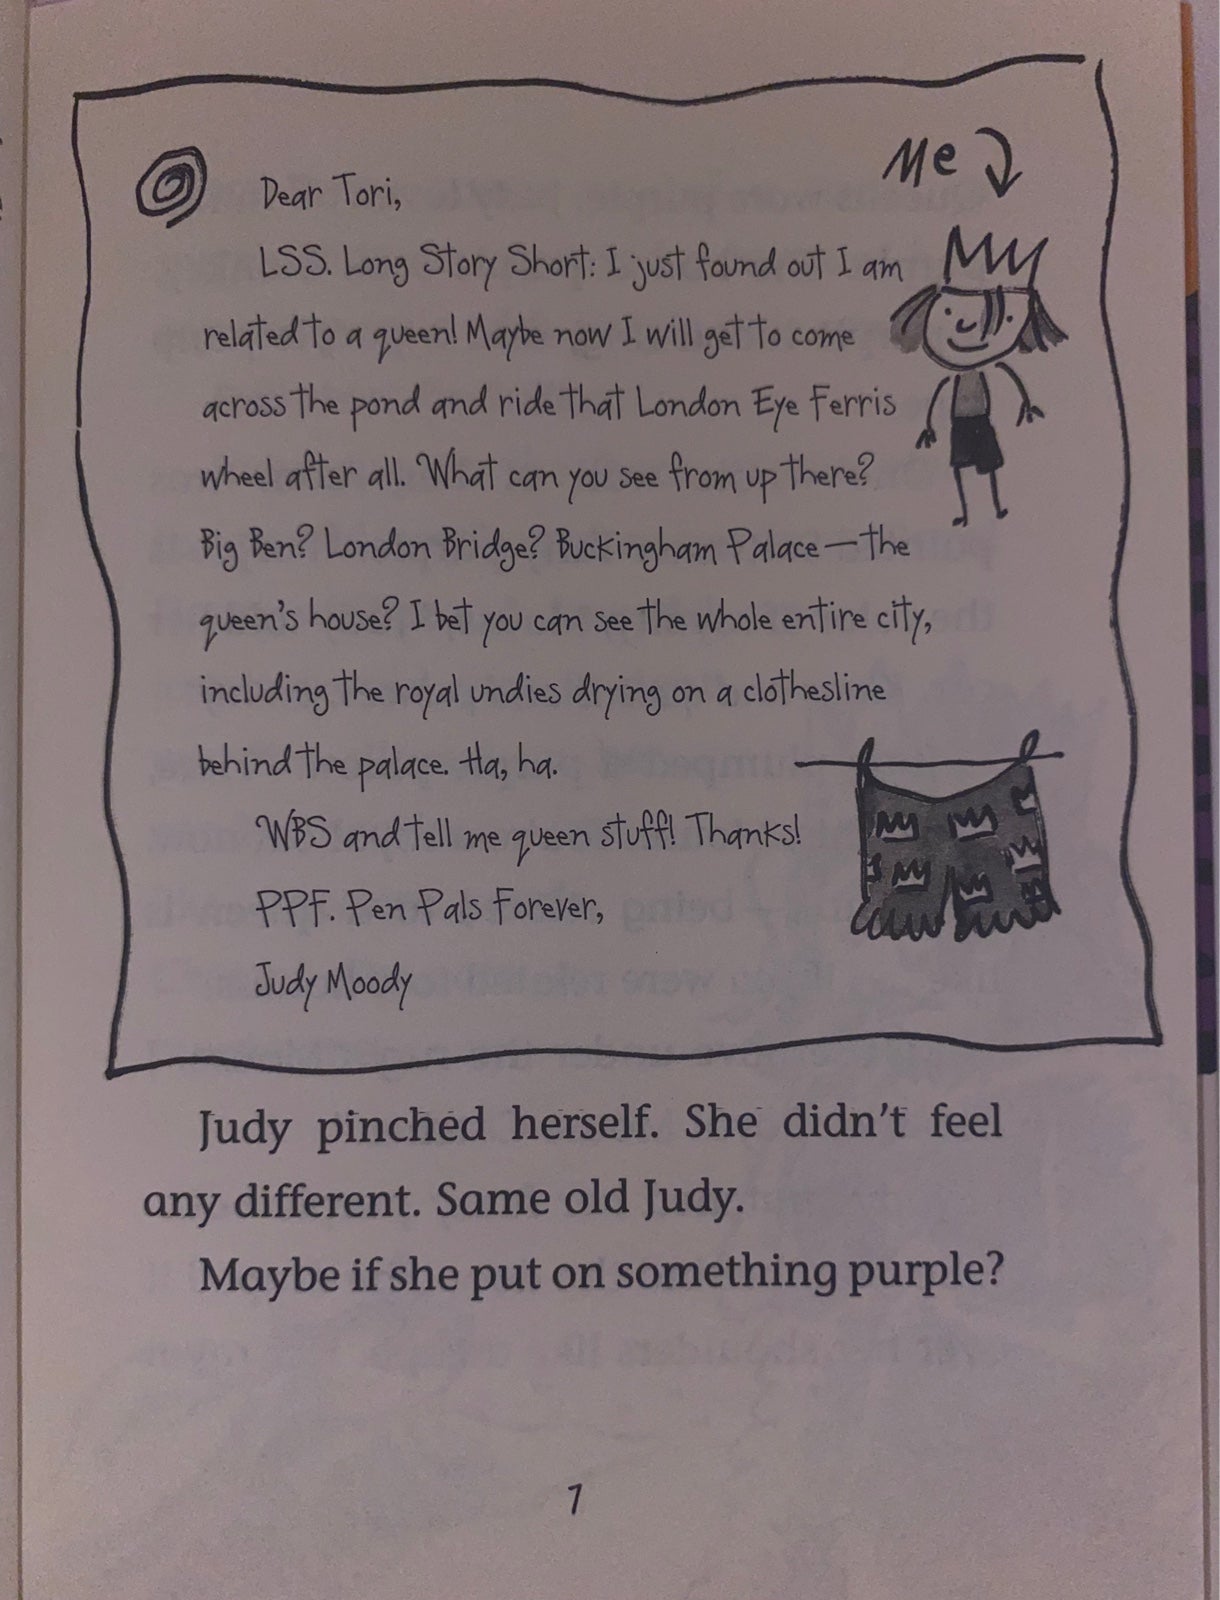 Me
Dear Tori,
LSS. Long Story Short: I just found out I am
related to a queen! Maybe now I will get to come
across the pond and ride that London Eye Ferris
wheel after all. What can you see from up there?
Big Ben? London Bridge? Buckingham Palace—the
queen's house? I bet you can see the whole entire city,
including the royal undies drying on a clothesline
behind the palace. Ha, ha.
WBS and tell me queen stuff! Thanks!
PPF. Pen Pals Forever,
Judy Moody
Judy pinched herself. She didn't feel
any different. Same old Judy.
Maybe if she put on something purple?
7